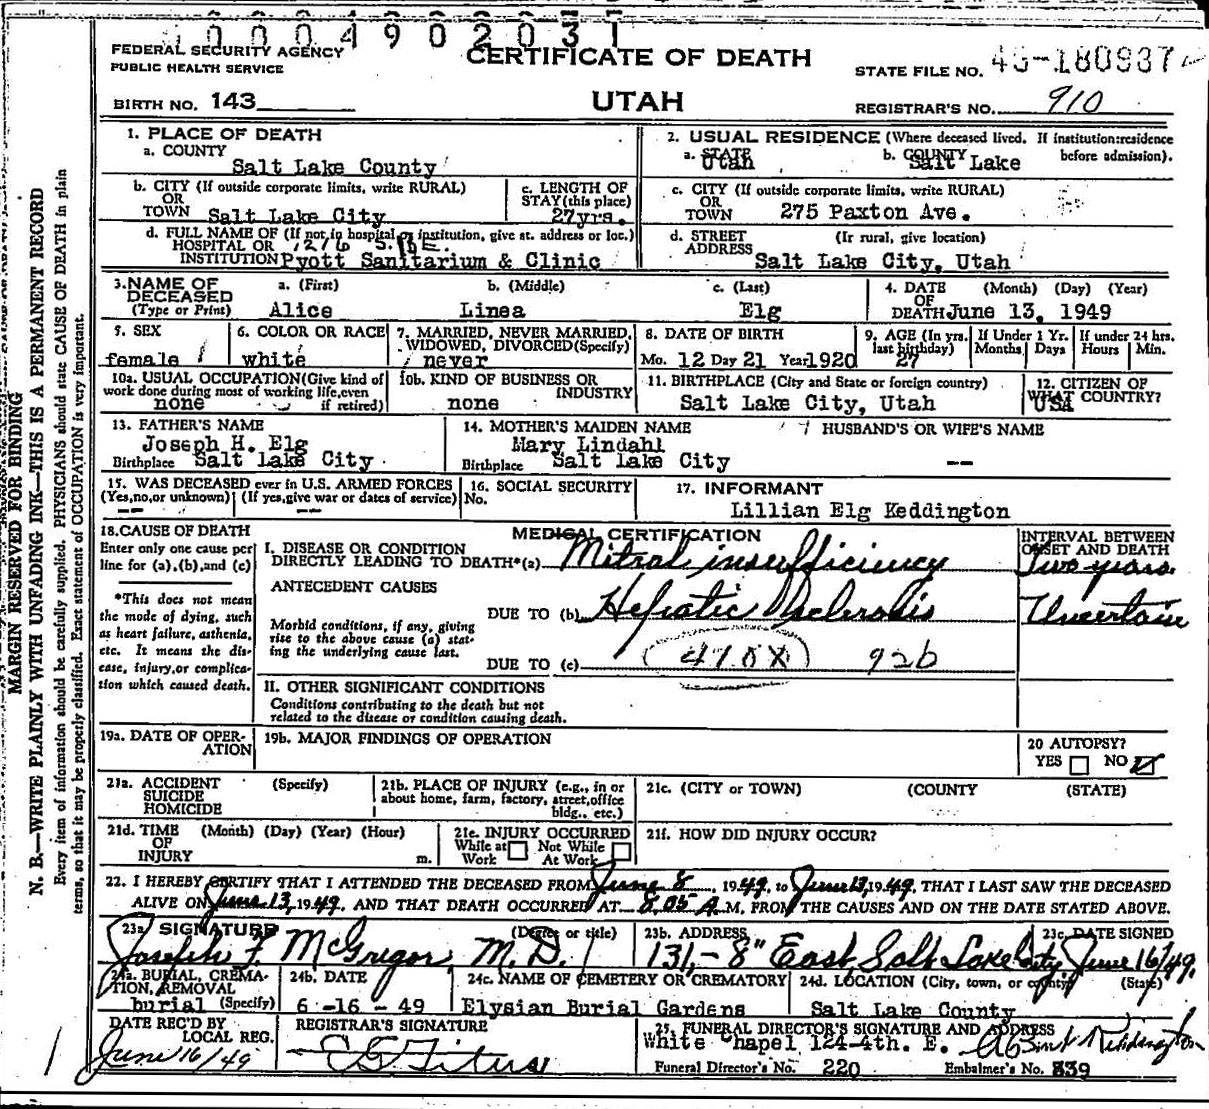 0004902031
FEDERAL SECURITY AGENCY
PUBLIC HEALTH SERVICE
CERTIFICATE OF DEATH
STATE FILE NO. 49-180937
BIRTH NO. 143
UTAH
REGISTRAR'S NO. 910
MARGIN RESERVED FOR BINDING
N. B.—WRITE PLAINLY WITH UNFADING INK—THIS IS A PERMANENT RECORD
Every item of information should be carefully supplied. PHYSICIANS should state CAUSE OF DEATH in plain
terms, so that it may be properly classified. Exact statement of OCCUPATION is very important.
1. PLACE OF DEATH
a. COUNTY
Salt Lake County
2. USUAL RESIDENCE (Where deceased lived. If institution:residence
before admission).
a. STATE Utah b. COUNTY Salt Lake
b. CITY (If outside corporate limits, write RURAL)
OR
TOWN Salt Lake City
c. LENGTH OF
STAY(this place)
27yrs.
c. CITY (If outside corporate limits, write RURAL)
OR
TOWN 275 Paxton Ave.
d. FULL NAME OF (If not in hospital or institution, give st. address or loc.)
HOSPITAL OR 1216 S. 13 E.
INSTITUTION Pyott Sanitarium & Clinic
d. STREET (If rural, give location)
ADDRESS
Salt Lake City, Utah
3. NAME OF DECEASED
(Type or Print)
a. (First) b. (Middle) c. (Last)
Alice Linea Elg
4. DATE (Month) (Day) (Year)
OF
DEATH June 13, 1949
5. SEX
female
6. COLOR OR RACE
white
7. MARRIED, NEVER MARRIED,
WIDOWED, DIVORCED(Specify)
never
8. DATE OF BIRTH
Mo. 12 Day 21 Year 1920
9. AGE (In yrs.
last birthday)
27
If Under 1 Yr.
Months Days
If under 24 hrs.
Hours Min.
10a. USUAL OCCUPATION(Give kind of
work done during most of working life,even
if retired)
none
10b. KIND OF BUSINESS OR
INDUSTRY
none
11. BIRTHPLACE (City and State or foreign country)
Salt Lake City, Utah
12. CITIZEN OF
WHAT COUNTRY?
USA
13. FATHER'S NAME
Joseph H. Elg
Birthplace Salt Lake City
14. MOTHER'S MAIDEN NAME
Mary Lindahl
Birthplace Salt Lake City
HUSBAND'S OR WIFE'S NAME
--
15. WAS DECEASED ever in U.S. ARMED FORCES
(Yes,no,or unknown) (If yes,give war or dates of service)
-- --
16. SOCIAL SECURITY
No.
17. INFORMANT
Lillian Elg Keddington
18. CAUSE OF DEATH
Enter only one cause per
line for (a),(b),and (c)
*This does not mean
the mode of dying, such
as heart failure, asthenia,
etc. It means the dis-
ease, injury,or complica-
tion which caused death.
MEDICAL CERTIFICATION
I. DISEASE OR CONDITION
DIRECTLY LEADING TO DEATH*(a) Mitral insufficiency
INTERVAL BETWEEN
ONSET AND DEATH
Two years
ANTECEDENT CAUSES
DUE TO (b) Hepatic Sclerosis Uncertain
Morbid conditions, if any, giving
rise to the above cause (a) stat-
ing the underlying cause last.
DUE TO (c) 410X 92b
II. OTHER SIGNIFICANT CONDITIONS
Conditions contributing to the death but not
related to the disease or condition causing death.
19a. DATE OF OPER-
ATION
19b. MAJOR FINDINGS OF OPERATION
20 AUTOPSY?
YES NO
21a. ACCIDENT (Specify)
SUICIDE
HOMICIDE
21b. PLACE OF INJURY (e.g., in or
about home, farm, factory, street,office
bldg., etc.)
21c. (CITY or TOWN) (COUNTY (STATE)
21d. TIME (Month) (Day) (Year) (Hour)
OF
INJURY m.
21e. INJURY OCCURRED
While at Not While
Work At Work
21f. HOW DID INJURY OCCUR?
22. I HEREBY CERTIFY THAT I ATTENDED THE DECEASED FROM June 8, 1949, to June 13, 1949, THAT I LAST SAW THE DECEASED
ALIVE ON June 13, 1949, AND THAT DEATH OCCURRED AT 8.05 A.M, FROM THE CAUSES AND ON THE DATE STATED ABOVE.
23a SIGNATURE (Degree or title)
Joseph F. McGregor M.D.
23b. ADDRESS
131 - 8" East Salt Lake City
23c. DATE SIGNED
June 16/49.
24a. BURIAL, CREMA-
TION, REMOVAL
burial (Specify)
24b. DATE
6 -16 - 49
24c. NAME OF CEMETERY OR CREMATORY
Elysian Burial Gardens
24d. LOCATION (City, town, or county) (State)
Salt Lake County
DATE REC'D BY
LOCAL REG.
June 16/49
REGISTRAR'S SIGNATURE
25. FUNERAL DIRECTOR'S SIGNATURE AND ADDRESS
White Chapel 124-4th. E. Keddington
Funeral Director's No. 220 Embalmer's No. 339